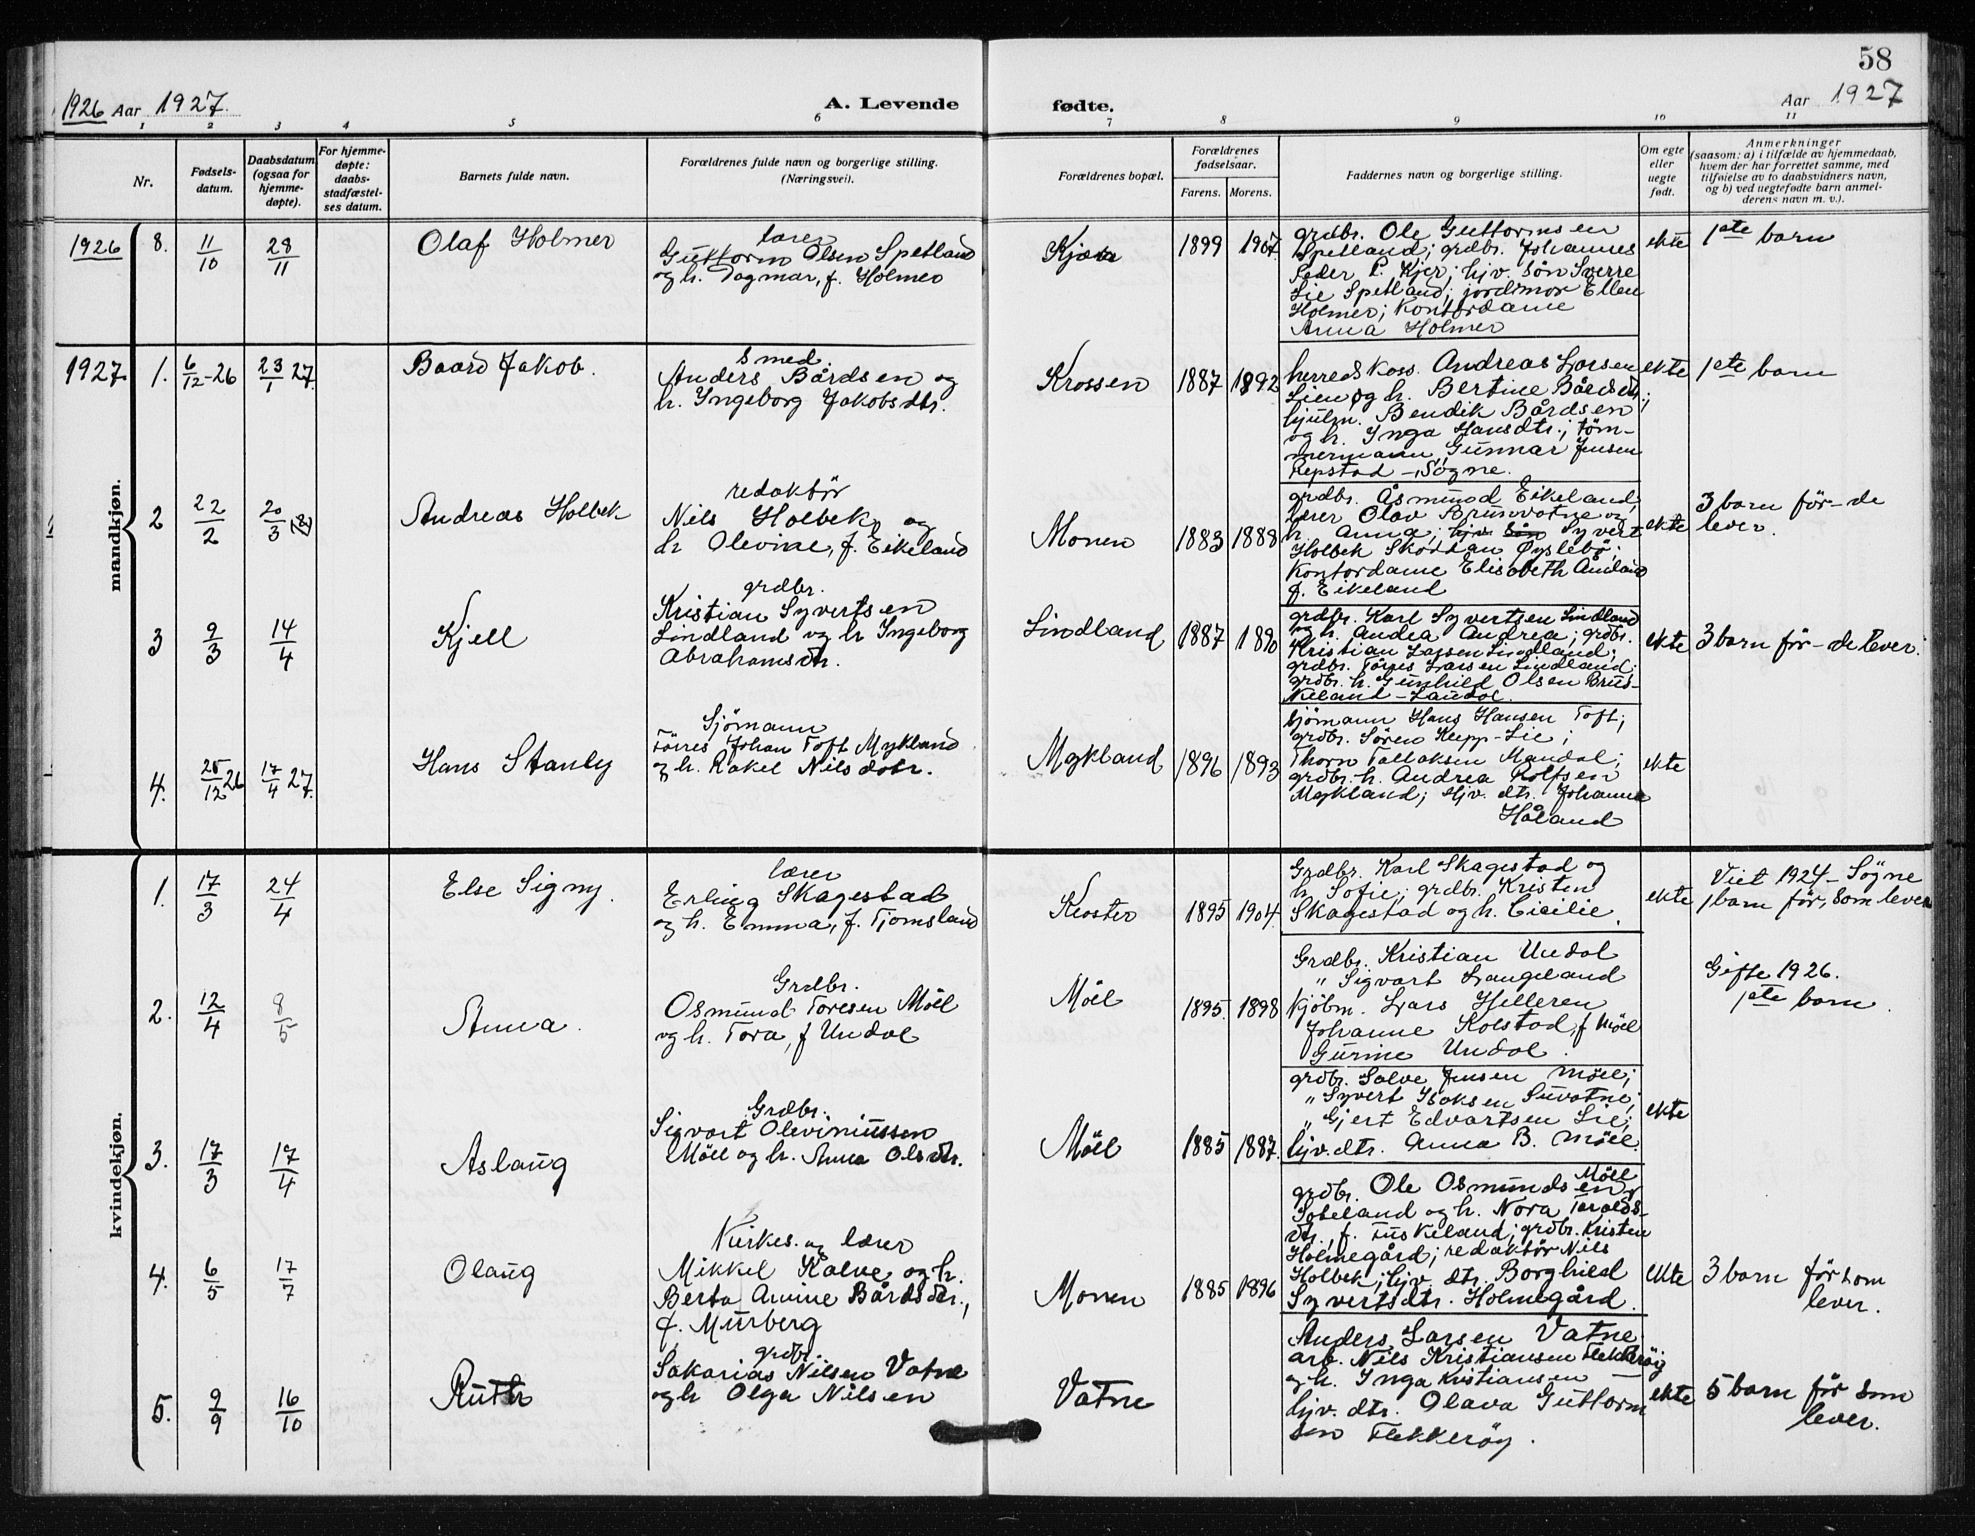 58
1926 Aar 1927.
A. Levende fødte.
Aar 1927
1 2 3 4 5 6 7 8 9 10 11
Nr.
Fødsels-
datum.
Daabsdatum
(ogsaa for
hjemme-
døpte).
For hjemme-
døpte:
daabs-
stadfæstel-
ses datum.
Barnets fulde navn.
Forældrenes fulde navn og borgerlige stilling.
(Næringsvei).
Forældrenes bopæl.
Forældrenes
fødselsaar.
Farens. Morens.
Faddernes navn og borgerlige stilling.
Om egte
eller
uegte
født.
Anmerkninger
(saasom: a) i tilfælde av hjemmedaab,
hvem der har forrettet samme, med
tilføielse av to daabsvidners navn,
og b) ved uegtefødte barn anmel-
derens navn m. v.).
mandkjøn.
1926 8. 11/10 28/11
Olaf Holmer
lærer
Guttorm Olsen Spetland
og h. Dagmar, f. Holmer
Kjær
1899 1907
grdbr. Ole Guttormsen
Spetland; grdbr. Johannes
Peder P. Kjer; hjv. søn Sverre
Lie Spetland; jordmor Ellen
Holmer; Kontordame
Anna Holmer
ekte
1ste barn
1927 1. 6/12-26 23/1 27.
Baard Jakob.
Smed.
Anders Bårdsen og
h. Ingeborg Jakobsdtr.
Krossen
1887 1892
herredskass. Andreas Larsen
Lien og h. Bertine Bårdsdtr;
hjulm. Bendik Bårdsen
og h. Inga Hansdtr.; tøm-
mermann Gunnar Jensen
Repstad - Søgne.
ekte
1ste barn
2 22/2 20/3
Andreas Holbek
redaktør
Nils Holbek og
h Olevine, f. Eikeland
Monen
1883 1888
grdbr. Åsmund Eikeland;
Lærer Olav Brunvatne og
h. Anna; hjv. søn Syvert
Holbek Skoddan Øyslebø;
Kontordame Elisabeth Åmland
f. Eikeland
ekte
3 barn før - de
lever.
3 9/3 14/4
Kjell
grdbr.
Kristian Syvertsen
Lindland og h Ingeborg
Abrahamsdtr.
Lindland
1887 1890
grdbr. Karl Syvertsen Lindland
og h. Andea Andrea; grdbr.
Kristian Larsen Lindland;
grdbr. Tørres Larsen Lindland;
grdbr. h. Gunhild Olsen Brus-
keland - Laudal.
ekte
3 barn før - de lever.
4. 25/12 26 17/4 27.
Hans Stanly
Sjømann
Tørres Johan Toft Mykland
og h. Rakel Nilsdotr.
Mykland
1896 1893
Sjømann Hans Hansen Toft;
grdbr. Søren Repp-Lie;
Thorn Tallaksen Mandal;
grdbr. h. Andrea Rolfsen
Mykland; hjv. dtr. Johanna
Håland
ekte
kvindekjøn.
1. 17/3 24/4
Else Signy.
lærer
Erling Skagestad
og h. Emma, f. Tjomsland
Kloster
1895 1904.
Grdbr. Karl Skagestad og
h. Sofie; grdbr. Kristen
Skagestad og h. Cicilie.
ekte
Viet 1924 - Søgne
1 barn før, som lever
2. 12/4 8/5
Anna.
Grdbr.
Osmund Toresen Möll
og h. Tora, f Undal
Möll
1895. 1898
Grdbr. Kristian Undal
" Sigvart Langeland
Kjøbm. Lars Helleren
Johanne Kolstad, f Möll
Gurine Undal.
Gifte 1926.
1ste barn.
3. 17/3 17/4
Aslaug
Grdbr.
Sigvart Oleviniussen
Möll og h. Anna Olsdtr.
Möll
1885 1887.
grdbr. Salve Jensen Möll;
" Syvert Isaksen Suvatne;
" Gjert Edvartsen Lie;
hjv. dtr. Anna B. Möll.
ekte
4. 6/5 17/7
Olaug
Kirkes. og lærer
Mikkel Kalve og h.
Berta Amine Bårdsdtr.,
f. Murberg
Monen
1885 1896
grdbr. Ole Osmundsen Möll
og h. Nora Taralds-
dtr. f. Tuskeland; grdbr. Kristen
Holmegård; redaktør Nils
Holbek; hjv. dtr. Borghild
Syvertsdtr. Holmegård.
ekte
3 barn før som
lever.
5. 9/9 16/10
Ruth
grdbr.
Sakarias Nilsen Vatne
og h Olga Nilsen
Vatne
Anders Larsen Vatne
arb. Nils Kristiansen Flekkerøy
og h. Inga Kristiansen —
hjv. dtr. Olava Guttorm
sen Flekkerøy.
ekte
5 barn før som
lever.